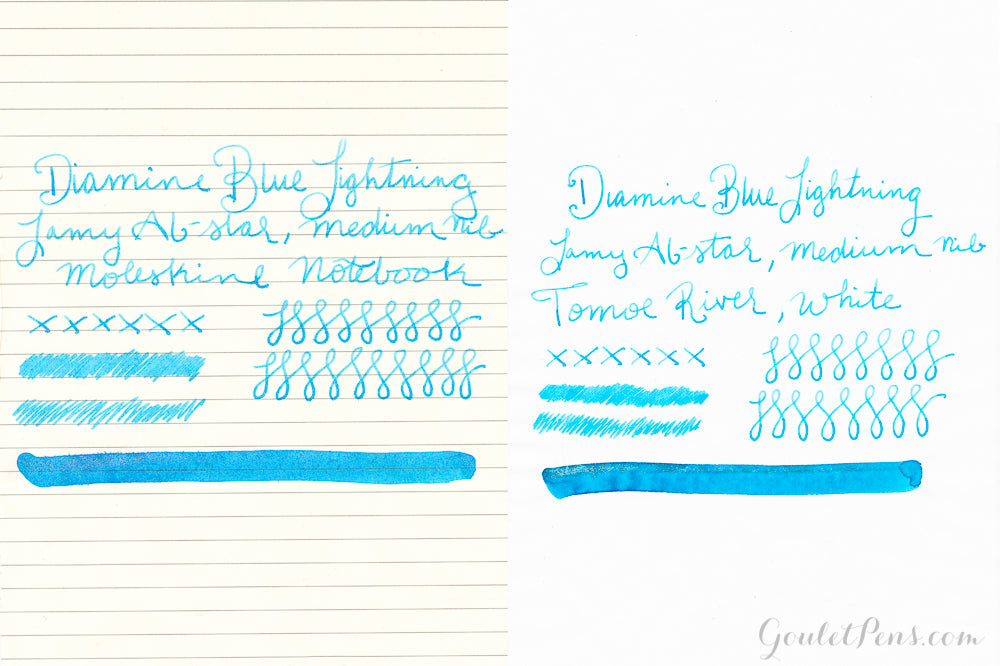 Diamine Blue Lightning
Lamy Al-star, medium nib
Moleskine Notebook
x x x x x x
Diamine Blue Lightning
Lamy Al-star, medium nib
Tomoe River, white
x x x x x x
GouletPens.com